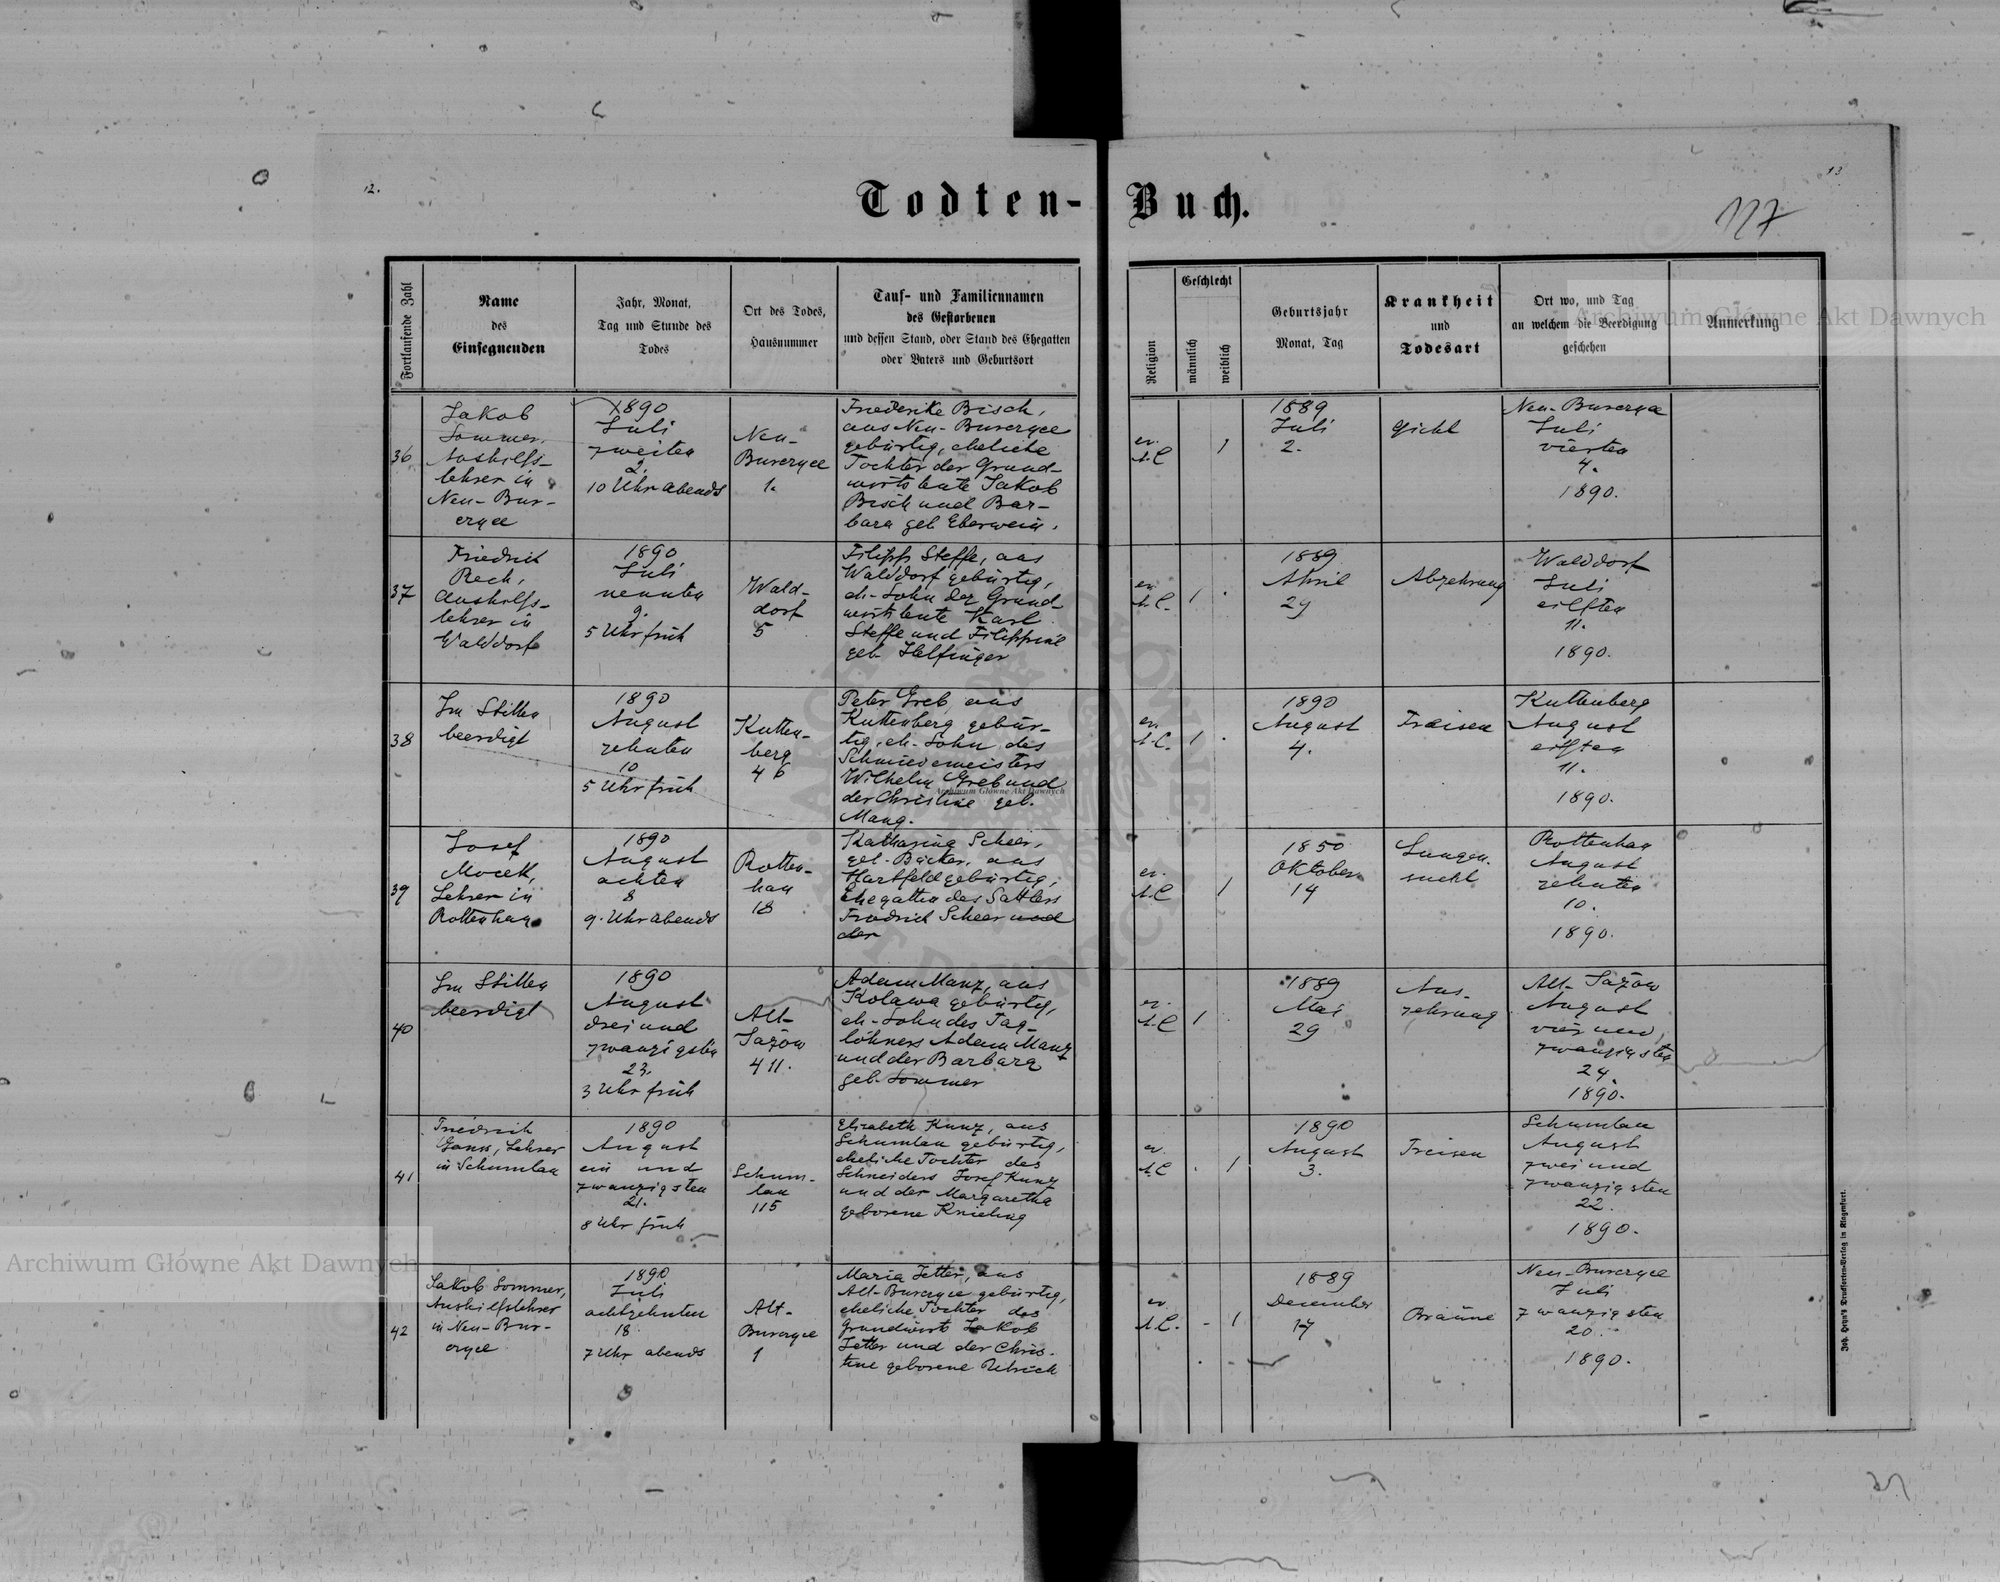 12.
13
Todten-Buch.
117
Fortlaufende Zahl
Name
des
Einsegnenden
Jahr, Monat,
Tag und Stunde des
Todes
Ort des Todes,
Hausnummer
Tauf- und Familiennamen
des Gestorbenen
und dessen Stand, oder Stand des Ehegatten
oder Vaters und Geburtsort
Religion
Geschlecht
männlich
weiblich
Geburtsjahr
Monat, Tag
Krankheit
und
Todesart
Ort wo, und Tag
an welchem die Beerdigung
geschehen
Anmerkung
36
Jakob
Sommer,
Aushilfs-
lehrer in
Neu-Bur-
czyce
1890
Juli
zweiten
2.
10 Uhr abends
Neu-
Burczyce
1.
Friederike Bisch,
aus Neu-Burczyce
gebürtig, eheliche
Tochter der Grund-
wirtsleute Jakob
Bisch und Bar-
bara geb Eberwein.
ev.
A.C
1
1889
Juli
2.
Gicht
Neu-Burczyce
Juli
vierten
4.
1890.
37
Friedrich
Rech,
Aushilfs-
lehrer in
Walddorf
1890
Juli
neunten
9.
5 Uhr früh
Wald-
dorf
5
Filipp Steffe, aus
Walddorf gebürtig,
eh-Sohn der Grund-
wirtsleute Karl
Steffe und Filippine
geb. Helfinger
ev.
A.C.
1
1889
April
29
Abzehrung
Walddorf
Juli
eilften
11.
1890.
38
Im Stillen
beerdigt
1890
August
zehnten
10
5 Uhr früh
Kutten-
berg
46
Peter Greb, aus
Kuttenberg gebür-
tig, eh-Sohn des
Schmiedemeisters
Wilhelm Greb und
der Christine geb.
Mang.
ev.
A.C.
1
1890
August
4.
Fraisen
Kuttenberg
August
eilften
11.
1890.
39
Josef
Mocek,
Lehrer in
Rottenhan
1890
August
achten
8
9. Uhr abends
Rotten-
han
18
Katharina Scheer,
geb. Bäcker, aus
Hartfeld gebürtig,
Ehegattin des Sattlers
Friedrich Scheer und
der
ev.
A.C
1
1850
Oktober
14
Lungen-
sucht
Rottenhan
August
zehnten
10.
1890.
40
Im Stillen
beerdigt
1890
August
drei und
zwanzigsten
23.
3 Uhr früh
Alt-
Jażów
411.
Adam Manz, aus
Kolawa gebürtig,
eh-Sohn des Tag-
löhners Adam Manz
und der Barbara
geb. Sommer
ev.
A.C
1
1889
Mai
29
Aus-
zehrung
Alt-Jażów
August
vier und
zwanzigsten
24.
1890.
41
Friedrich
Gans, Lehrer
in Schumlau
1890
August
ein und
zwanzigsten
21.
8 Uhr früh
Schum-
lau
115
Elisabeth Kunz, aus
Schumlau gebürtig,
eheliche Tochter des
Schneiders Josef Kunz
und der Margaretha
geborene Knieling
ev.
A.C
1
1890
August
3.
Freisen
Schumlau
August
zwei und
zwanzigsten
22.
1890.
42
Jakob Sommer,
Aushilfslehrer
in Neu-Bur-
czyce
1890
Juli
achtzehnten
18.
7 Uhr abends
Alt-
Burczyce
1
Maria Jetter, aus
Alt-Burczyce gebürtig,
eheliche Tochter des
Grundwirts Jakob
Jetter und der Chris-
tine geborene Ulrich
ev.
A.C.
1
1889
December
17
Bräune
Neu-Burczyce
Juli
zwanzigsten
20.
1890.
Joh. Heyn's Drucksorten-Verlag in Klagenfurt.
Archiwum Główne Akt Dawnych
Archiwum Główne Akt Dawnych
Archiwum Główne Akt Dawnych